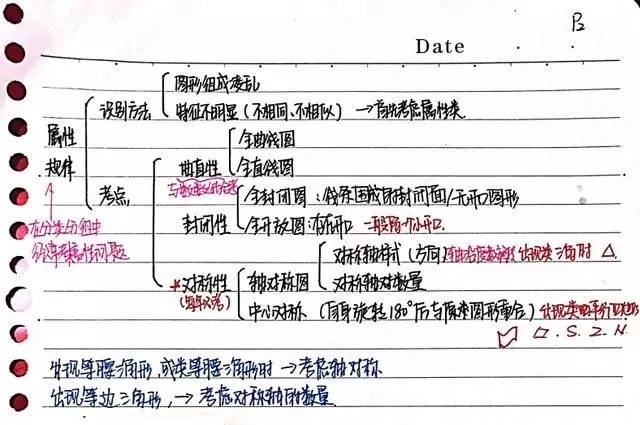 P2
Date
图形组成凌乱
识别方法
特征不明显（不相同、不相似）→首先考虑属性类
属性
规律
全曲线图
曲直性
全直线图
考点
全封闭图：线条围成的封闭面/无开口图形
封闭性
全开放图：有开口 一般留一个小开口.
在分类分组中
对称轴样式（方向） 出现类三角时 △
*对称性
轴对称图
对称轴数量
中心对称（自身旋转180°后与原来图形重合）出现类平行四边形
▱.S.Z.N.
出现等腰三角形，或类等腰三角形时→考虑轴对称
出现等边三角形，→考虑对称轴的数量